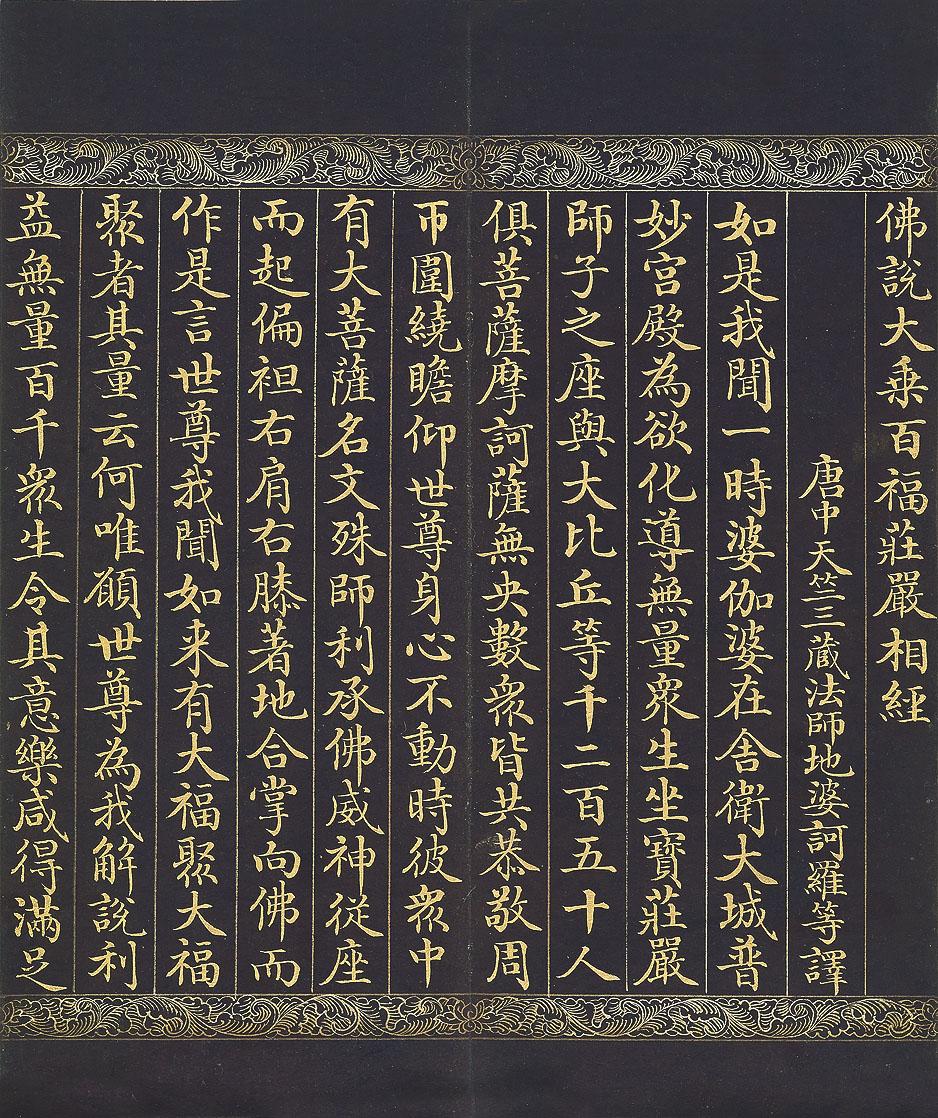 佛說大乘百福莊嚴相經
唐中天竺三藏法師地婆訶羅等譯
如是我聞一時婆伽婆在舍衛大城普
妙宮殿為欲化導無量眾生坐寶莊嚴
師子之座與大比丘等千二百五十人
俱菩薩摩訶薩無央數眾皆共恭敬周
帀圍繞瞻仰世尊身心不動時彼眾中
有大菩薩名文殊師利承佛威神從座
而起偏袒右肩右膝著地合掌向佛而
作是言世尊我聞如来有大福聚大福
聚者其量云何唯願世尊為我解說利
益無量百千眾生令其意樂咸得滿足